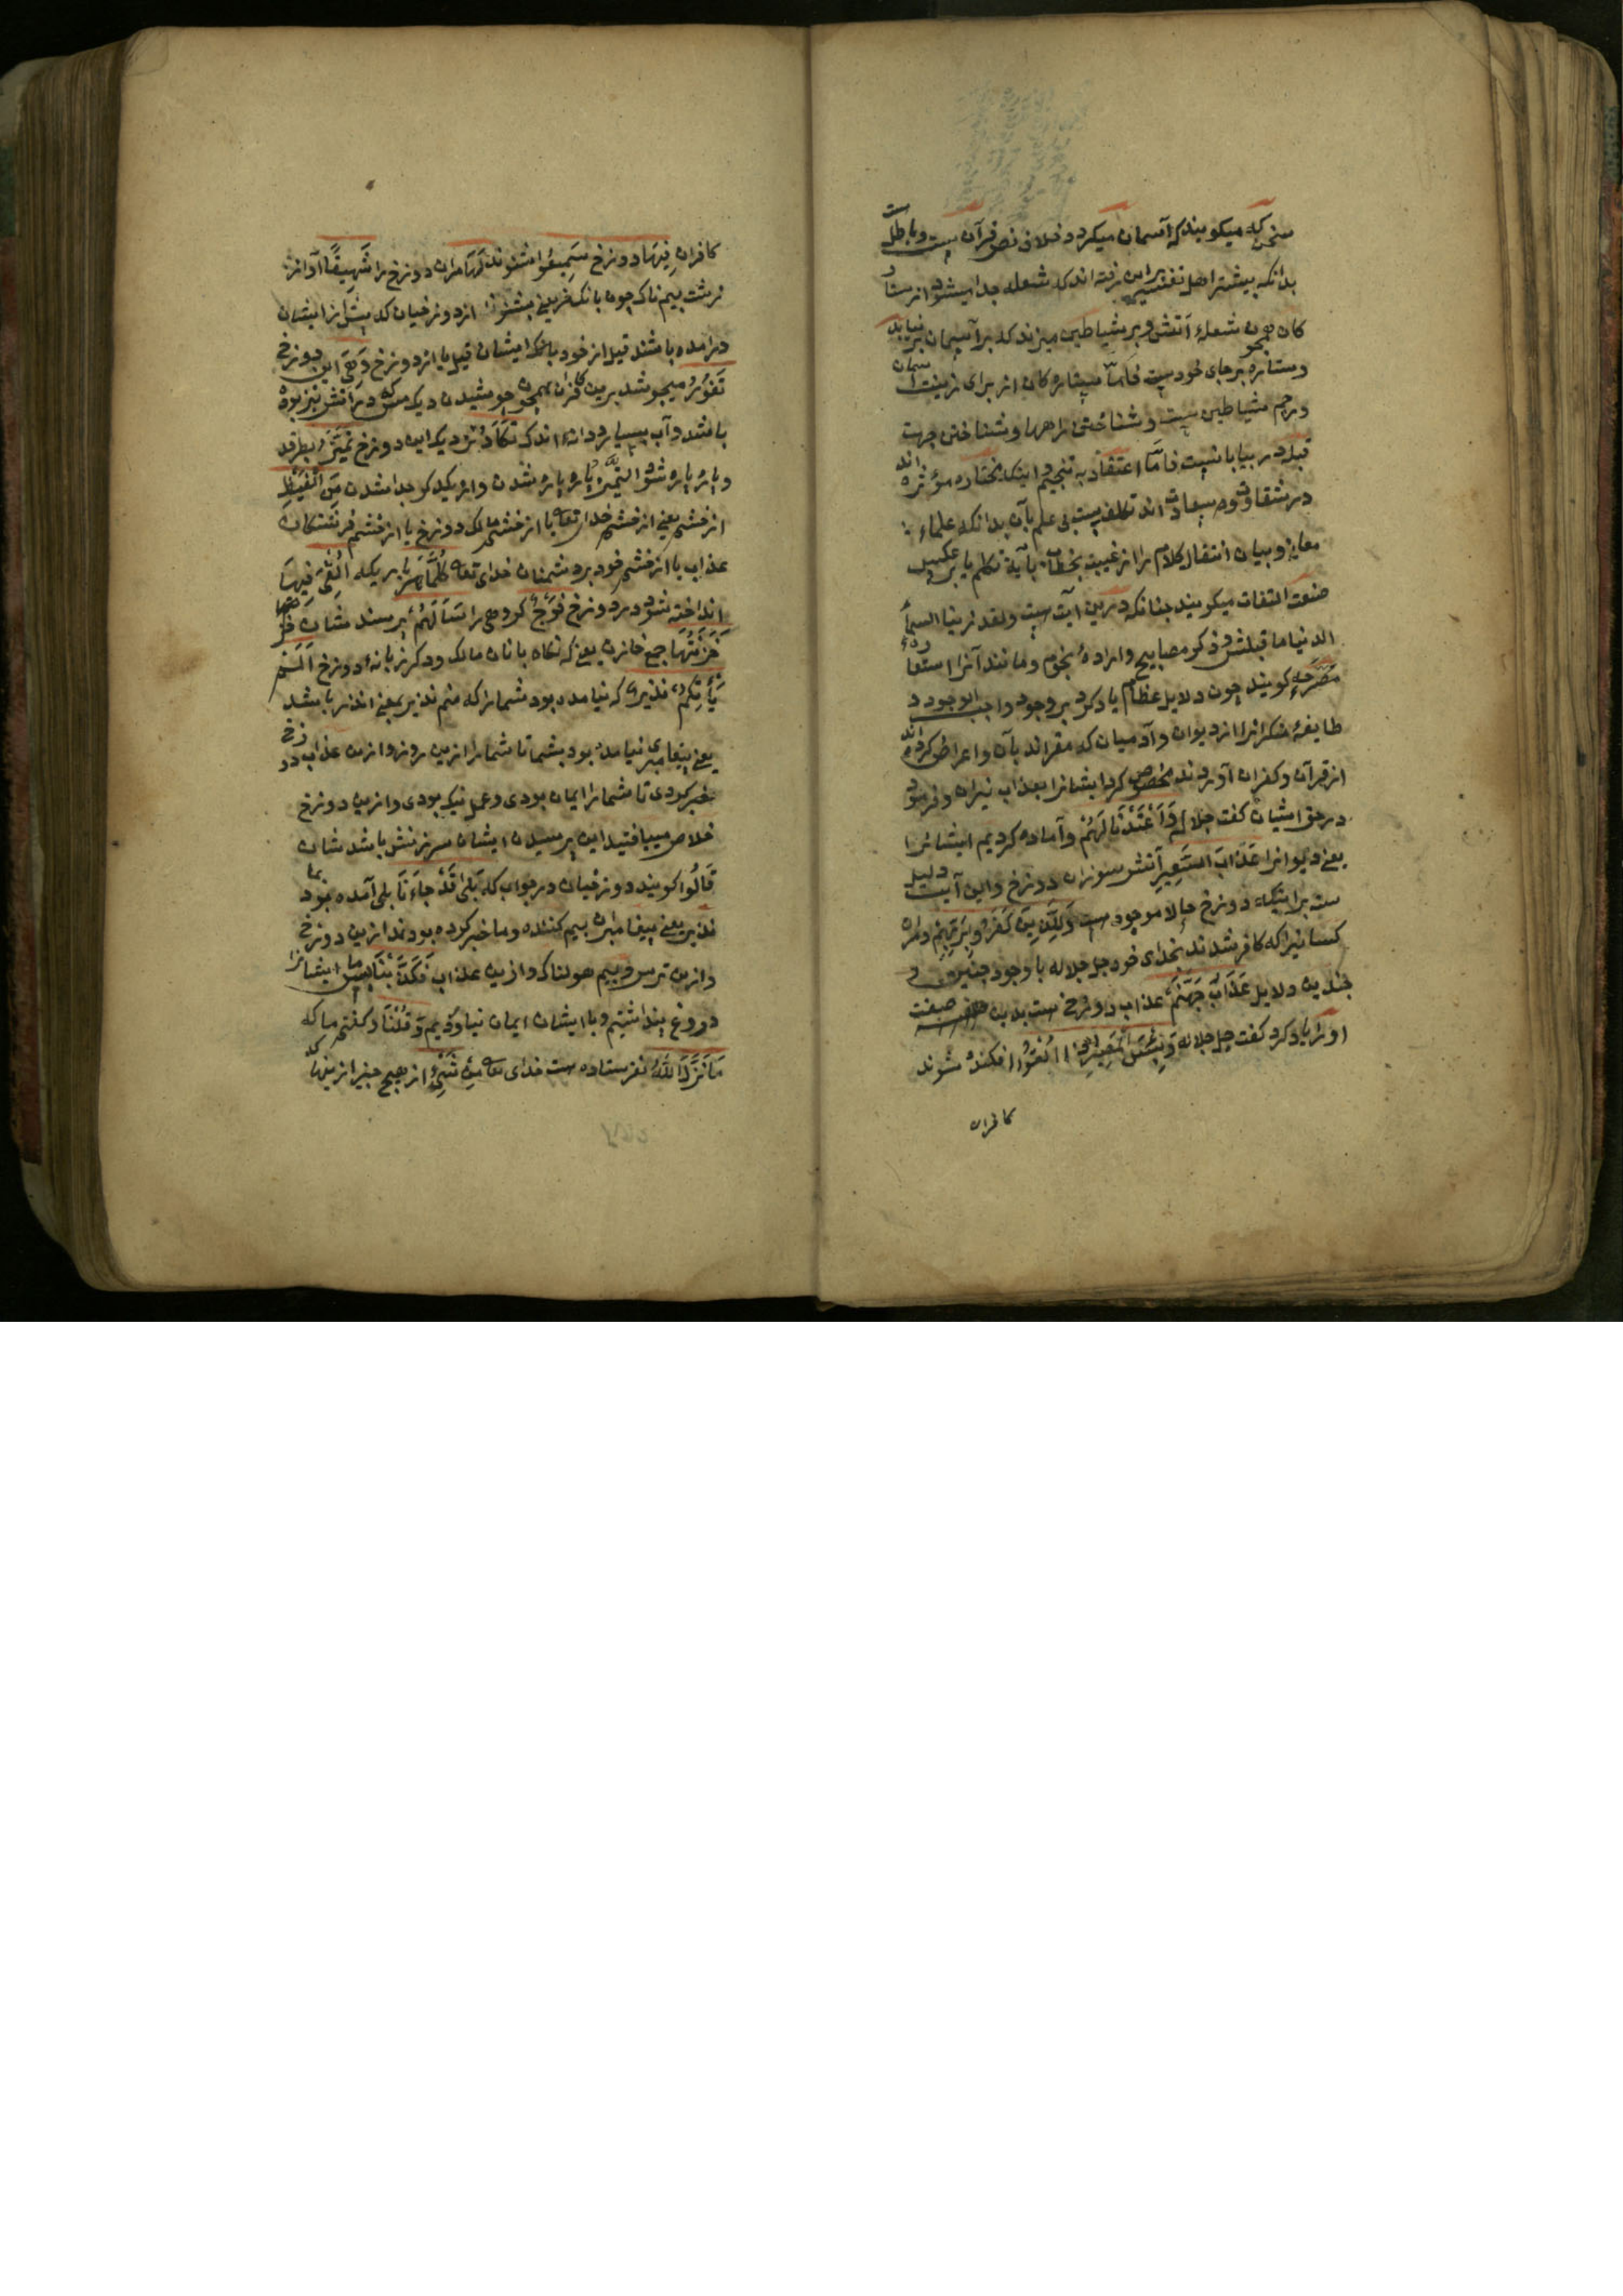 سخن که میکویند که آسمان میکردد خلاف نص قرآن ست و باطل ست
بدانکه بیشتر اهل تفسیر براین رفته اند که شعله جدا میشود از ستار
کان همچون شعلهٔ آتش و بر شیاطین میزند که بر آسمان بر نیاید
و ستاره بر جای خود ست فاما ستاره کان از برای زینت آسمان
و رجم شیاطین ست و شناختن راهها و شناختن جهت
قبله در بیابانست فامّا اعتقاد به تنجیم اینکه مؤثره اند
در شقاوت و سعادت اند تکلف ست بی علم بآن بدانکه علماء
معانی و بیان انتقال کلام را از غیبت بخطاب یا به تکلم یا بر عکس
صنعت التفات میکویند چنانکه درین آیت ست ولقد زینا السمأ
الدنیا ما قبلش و ذکر مصابیح و ارادهٔ نجوم و مانند آنرا استعاره
مصرحه کویند چون دلایل عظام یاد کرد بر وجود واجب الوجود
طایفهٔ منکرانرا از دیوان و آدمیان که مقراند بآن و اعراض کرده اند
از قرآن و کفران آوردند مخصوص کرد ایشانرا بعذاب نیران و فرمود
در حق ایشان کفت جل جلاله وَأَعْتَدْنَا لَهُمْ و آماده کردیم ایشانرا
یعنی دیوانرا عَذَابَ السَّعِیرِ آتش سوزان دوزخ و این آیت دلیل
ست بر اینکه دوزخ حالا موجود ست وَلِلَّذِینَ کَفَرُوا بِرَبِّهِمْ و مران
کسانیرا که کافر شدند بخدای خود جل جلاله با وجود چنین و
چندین دلایل عَذَابُ جَهَنَّمَ عذاب دوزخ ست بدین صفت
او را یاد کرد کفت جل جلاله وَبِئْسَ الْمَصِیرُ إِذَا أُلْقُوا افکنده شوند
کافران
کافران فِیهَا در دوزخ سَمِعُوا شنوند لَهَا مران دوزخ را شَهِیقًا آواز
زشت بیم ناک چون بانک خر یعنی بشنوند از دوزخیان که پیش از ایشان
درامده باشند قیل از خود بانک ایشان قیل یا از دوزخ وَهِیَ این دوزخ
تَفُورُ میجوشد برین کافران همچو جوشیدن دیک مس که در آتش تیز بود
باشد و آب بسیار و دانهٔ اندک تَکَادُ نزدیک این دوزخ تَمَیَّزُ بطرقد
و پاره پاره شود التمیز پاره پاره شدن و از یکدیکر جدا شدن مِنَ الْغَیْظِ
از خشم یعنی از خشم خدای تعالی یا از خشم مالک دوزخ یا از خشم فرشتکان
عذاب یا از خشم خود بر دشمنان خدای تعالی کُلَّمَا هر باریکه أُلْقِیَ فِیهَا
انداخته شود در دوزخ فَوْجٌ کروهی را سَأَلَهُمْ پرسند شان
خَزَنَتُهَا جمع خازن یعنی که نکاه بانان مالک و دکر زبانهٔ دوزخ أَلَمْ
یَأْتِکُمْ نَذِیرٌ که نیامده بود شمارا که منم نذیر بمعنی انذار باشد
یعنی پیغامبری نیامده بود بشما تا شمارا ازین روز و ازین عذاب دوزخ
خبر کردی تا شما را ایمان بودی و عمل نیک بودی و ازین دوزخ
خلاص میبافتید این پرسیدن ایشان سرزنش باشد شان
قَالُوا کویند دوزخیان در جواب که بَلَی قَدْ جَاءَنَا بلی آمده بود بما
نذیر یعنی پیغامبران بیم کننده و ما خبر کرده بودند ازین دوزخ
و ازین ترس و بیم هولناک و ازین عذاب فَکَذَّبْنَا پس ما ایشانرا
دروغ پنداشتیم و با ایشان ایمان نیاوردیم وَقُلْنَا و کفتیم ما که
مَا نَزَّلَ اللَّهُ نفرستاده ست خدای تعالی مِنْ شَیْءٍ از هیچ چیز ازینها که